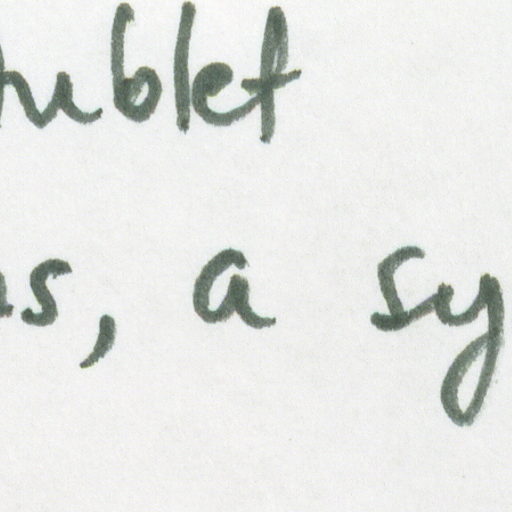 tublet
s, a sy